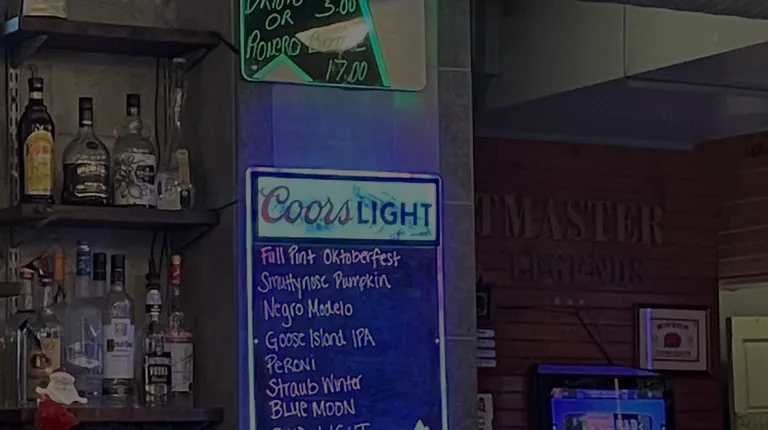 OR 5.00
17.00
Coors LIGHT
Full Pint Oktoberfest
Smuttynose Pumpkin
Negro Modelo
Goose Island IPA
PERONI
Straub Winter
BLUE MOON
TMASTER
LEGENDS
VODKA